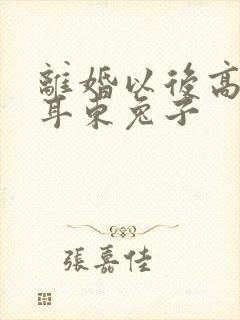 離婚以後高
耳東兔子
張嘉佳